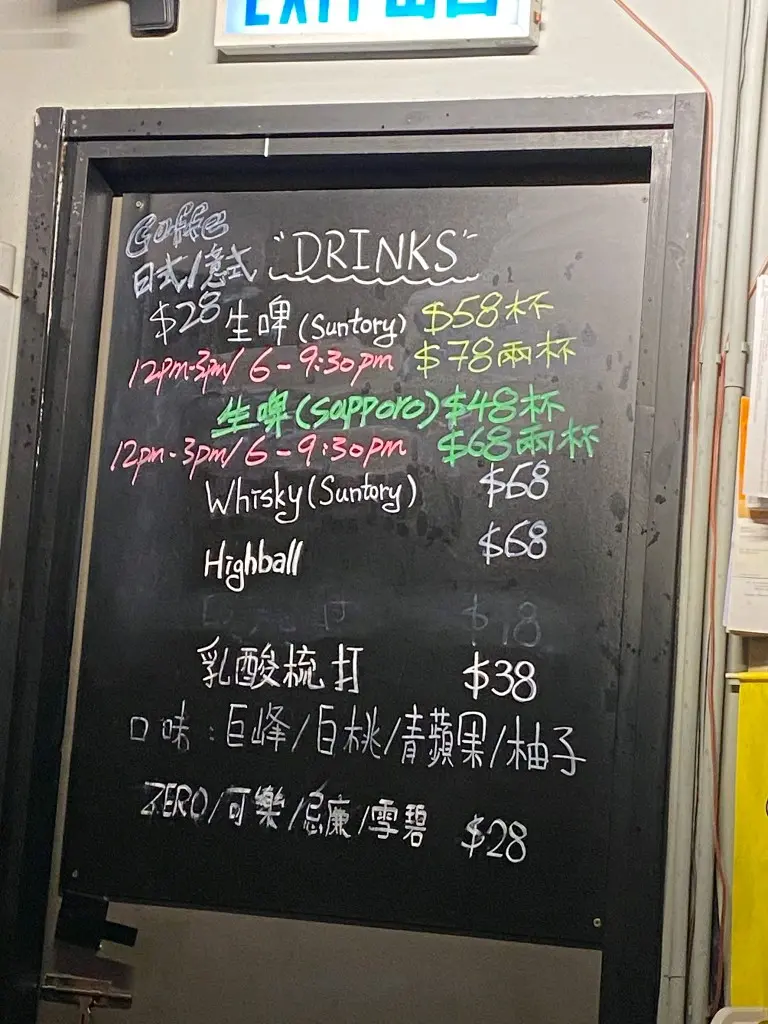 EXIT 出口
Coffe
日式/意式
$28
"DRINKS"
生啤(Suntory) $58杯
12pm-3pm/6-9:30pm $78兩杯
生啤(Sapporo) $48杯
12pm-3pm/6-9:30pm $68兩杯
Whisky(Suntory) $68
Highball $68
乳酸梳打 $38
口味:巨峰/白桃/青蘋果/柚子
ZERO/可樂/忌廉/雪碧 $28